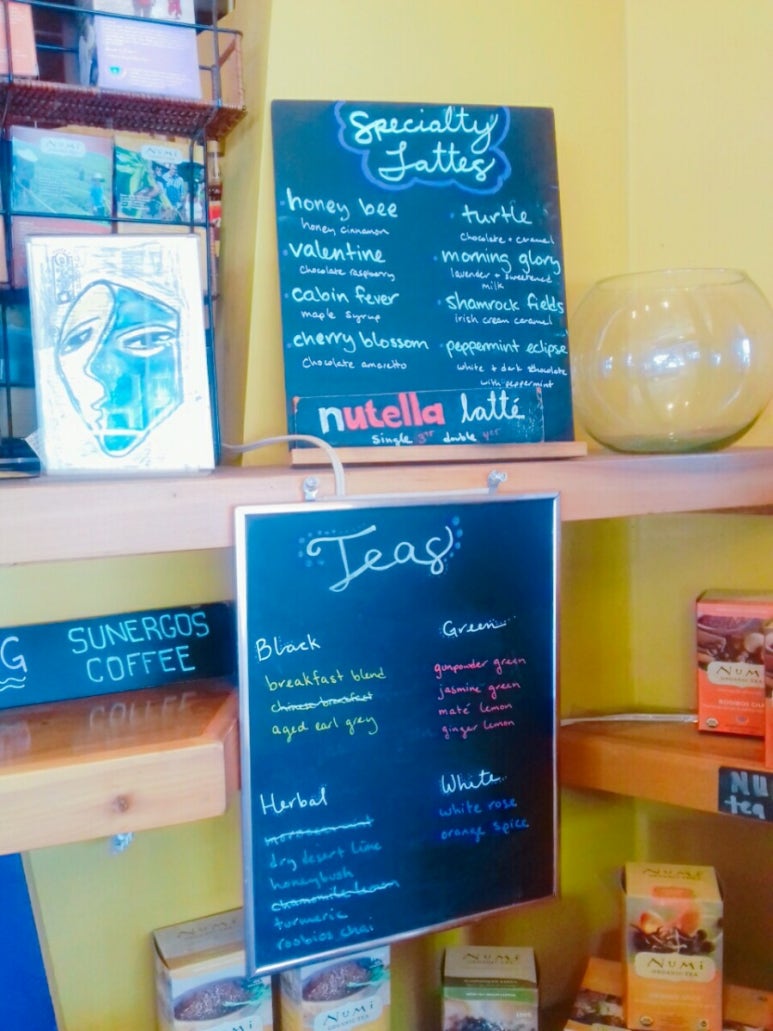 NUMI
NUMI
Specialty
Lattes
honey bee
honey cinnamon
valentine
chocolate raspberry
cabin fever
maple syrup
cherry blossom
chocolate amaretto
turtle
chocolate + caramel
morning glory
lavender + sweetened
milk
shamrock fields
irish cream caramel
peppermint eclipse
white + dark chocolate
with peppermint
nutella latté
single double
Teas
Black
breakfast blend
chinese breakfast
aged earl grey
Green
gunpowder green
jasmine green
maté lemon
ginger lemon
Herbal
dry desert lime
honeybush
chamomile lemon
turmeric
rooibos chai
White
white rose
orange spice
G
SUNERGOS
COFFEE
NUMI
ORGANIC TEA
ROOIBOS CHAI
NU
tea
NUMI
NUMI
NUMI
NUMI
ORGANIC TEA